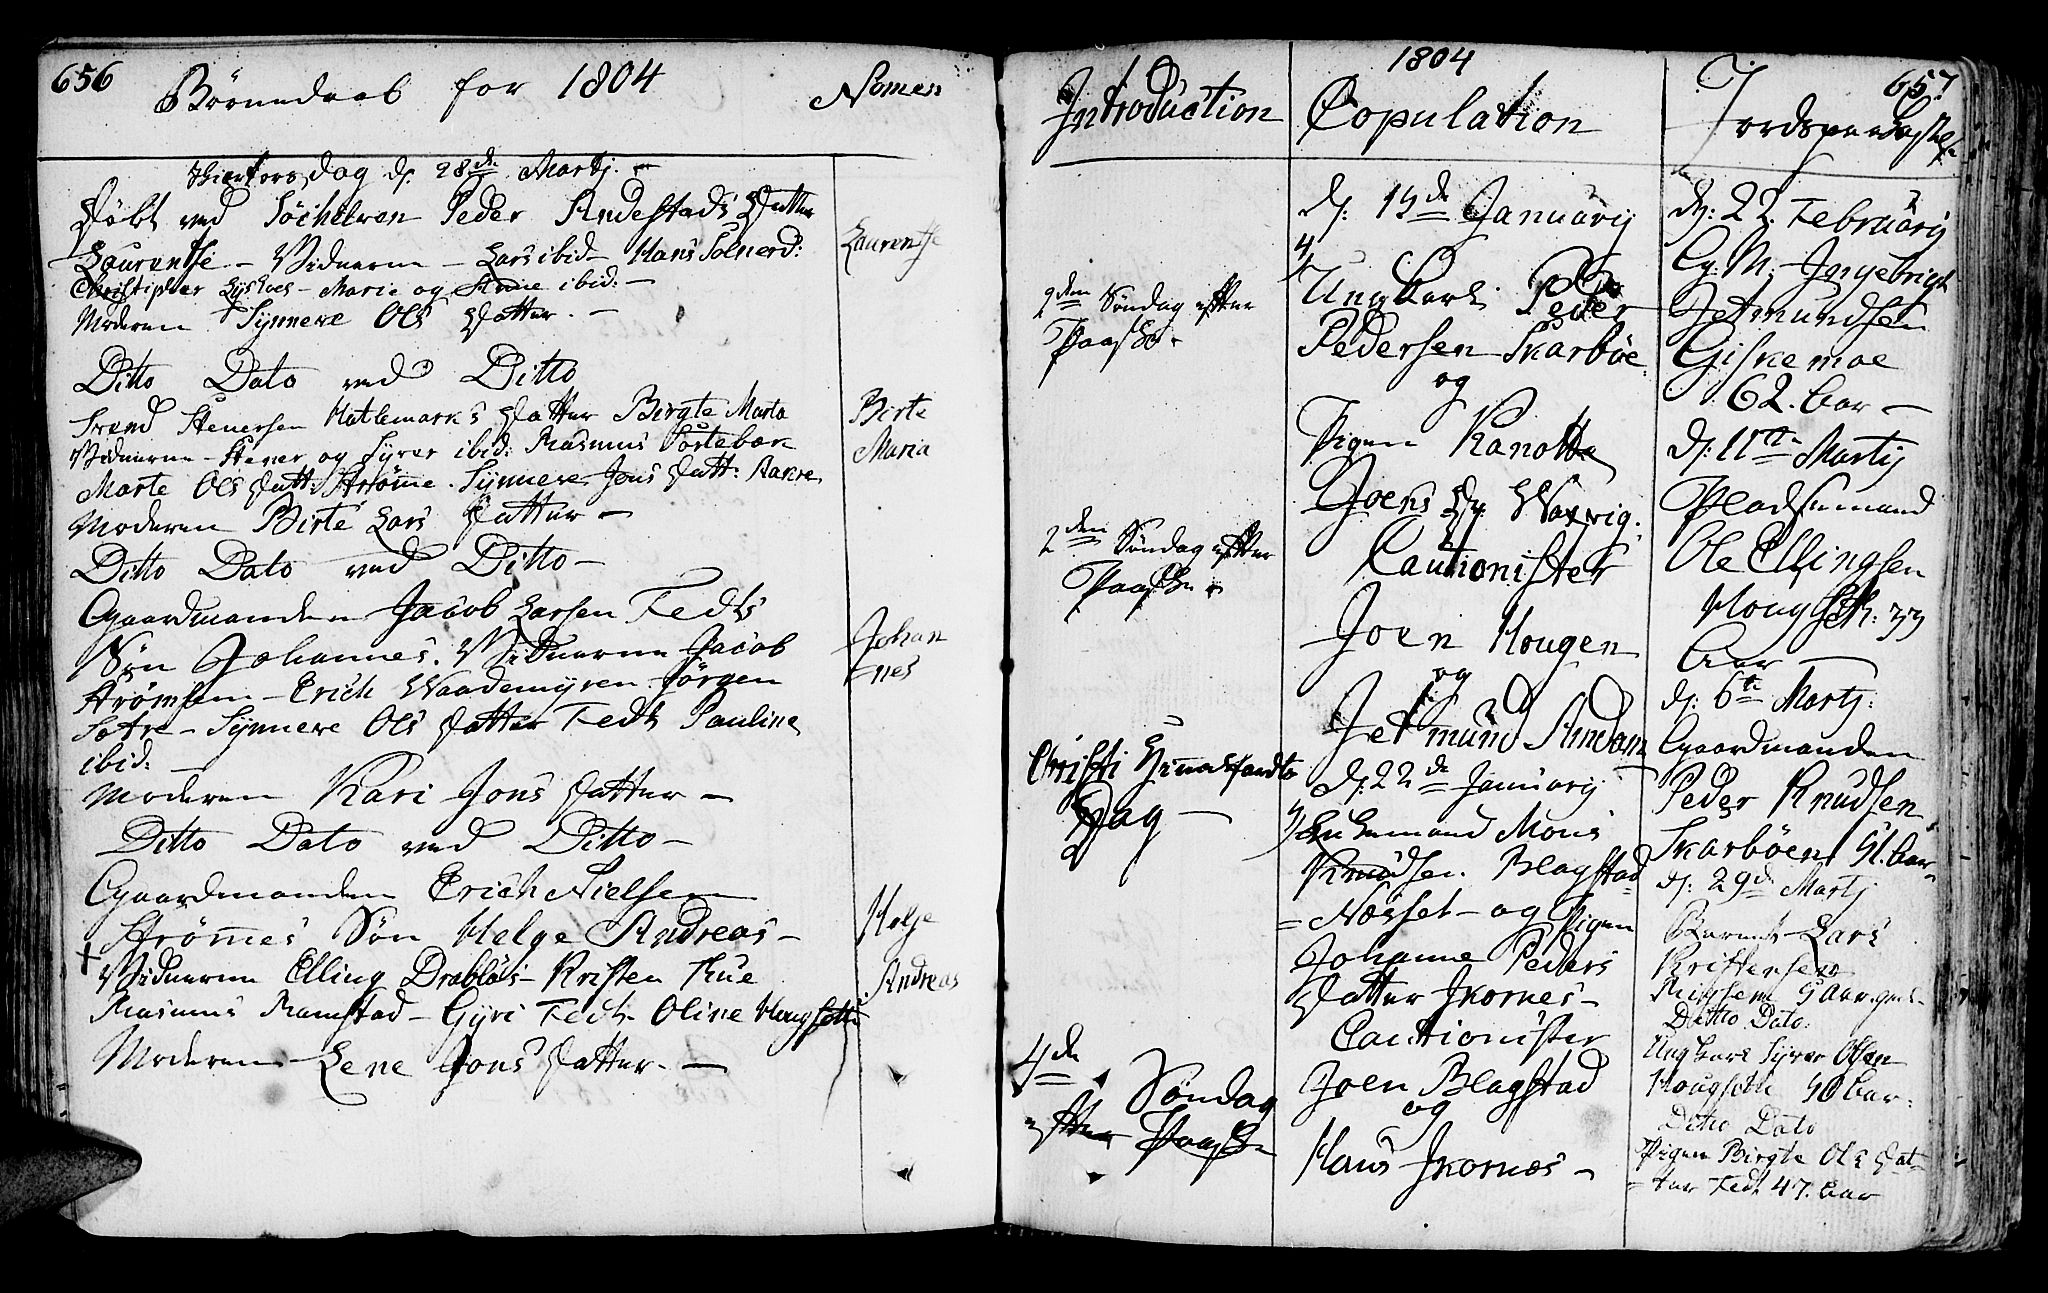 656
Börnedaab for 1804
Nomen
Skiertorsdag d. 28de Martj. -
Döbt ved Peder Andestads Datter
Laurentse - Vidnerne - Lars ibid - Hans Solnørd:
Marie og Anne ibid: -
Moderen Synneve Ols Datter. -
Laurentse
Ditto Dato ved Ditto
Svend Stenersen Hatlemarks Datter Birgte Marta
Vidnerne - Stener og Syver ibid: Rasmus
Marte Ols Datt: Strømme. Synneve Jons Datt: Aakre
Moderen Birte Lars Datter -
Birte
Maria
Ditto Dato ved Ditto -
Gaardmanden Jacob Larsen Fedts
Søn Johannes. Vidnerne Jacob
- Erich Waademyren - Jörgen
Sætre - Synneve Ols Datter Fedt Pauline
ibid: -
Moderen Kari Jons Datter -
Johan
nes
Ditto Dato ved Ditto -
Gaardmanden Erich Nielsen
Strømmes Søn Helge Andreas -
+ Vidnerne Elling Drabløs - Kristen Kue
Rasmus Ramstad - Gyri Fedt - Oline Hougsette
Moderen - Lene Jons Datter. -
Helge
Andreas
Introduction
2den Søndag efter
Paaske.
2den Søndag efter
Paaske.
Christi Himmelfardts
Dag -
4de Søndag
efter Paaske
1804
Copulation
d: 15de Januarij
Ung Karl Peder
Pedersen Skarbøe
og
Pigen
Joens Dr.
Cautionister
Joen Hougen
og
Jetmund Andam
d: 22de Januarij
Enkemand Mons
Knudsen. Blagstad
= Næsset - og Pigen
Johanne Peders
Datter Ikornes -
Cautionister
Joen Blagstad
og
Hans Ikornæs -
657
Jordspaakastelse
d: 22. Februarij
G. M: Ingebrigt
Jetmundsen
Giskemoe
62. Aar -
d: 11te Martij
Pladsemand
Ole Ellingsen
Hougset: 33
Aar -
d: 6te Martj:
Gaardmanden
Peder Knudsen
Skarbøen 51. Aar
d: 29de Martj
Barnet Lars
Kristensen
5 Aar. gml.
Ditto Dato:
Ung Karl Syver Olsen
Hougsette 50 Aar.
Ditto Dato
Pigen Birgte Ols Dat=
= ter Fedt 47. Aar